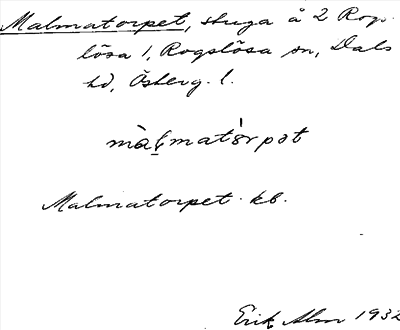 Malmatorpet, stuga å 2 Rogs-
lösa 1, Rogslösa sn, Dals
hd, Österg. l.
màl̬matòrpət
Malmatorpet. kb.
Erik Alm 1932